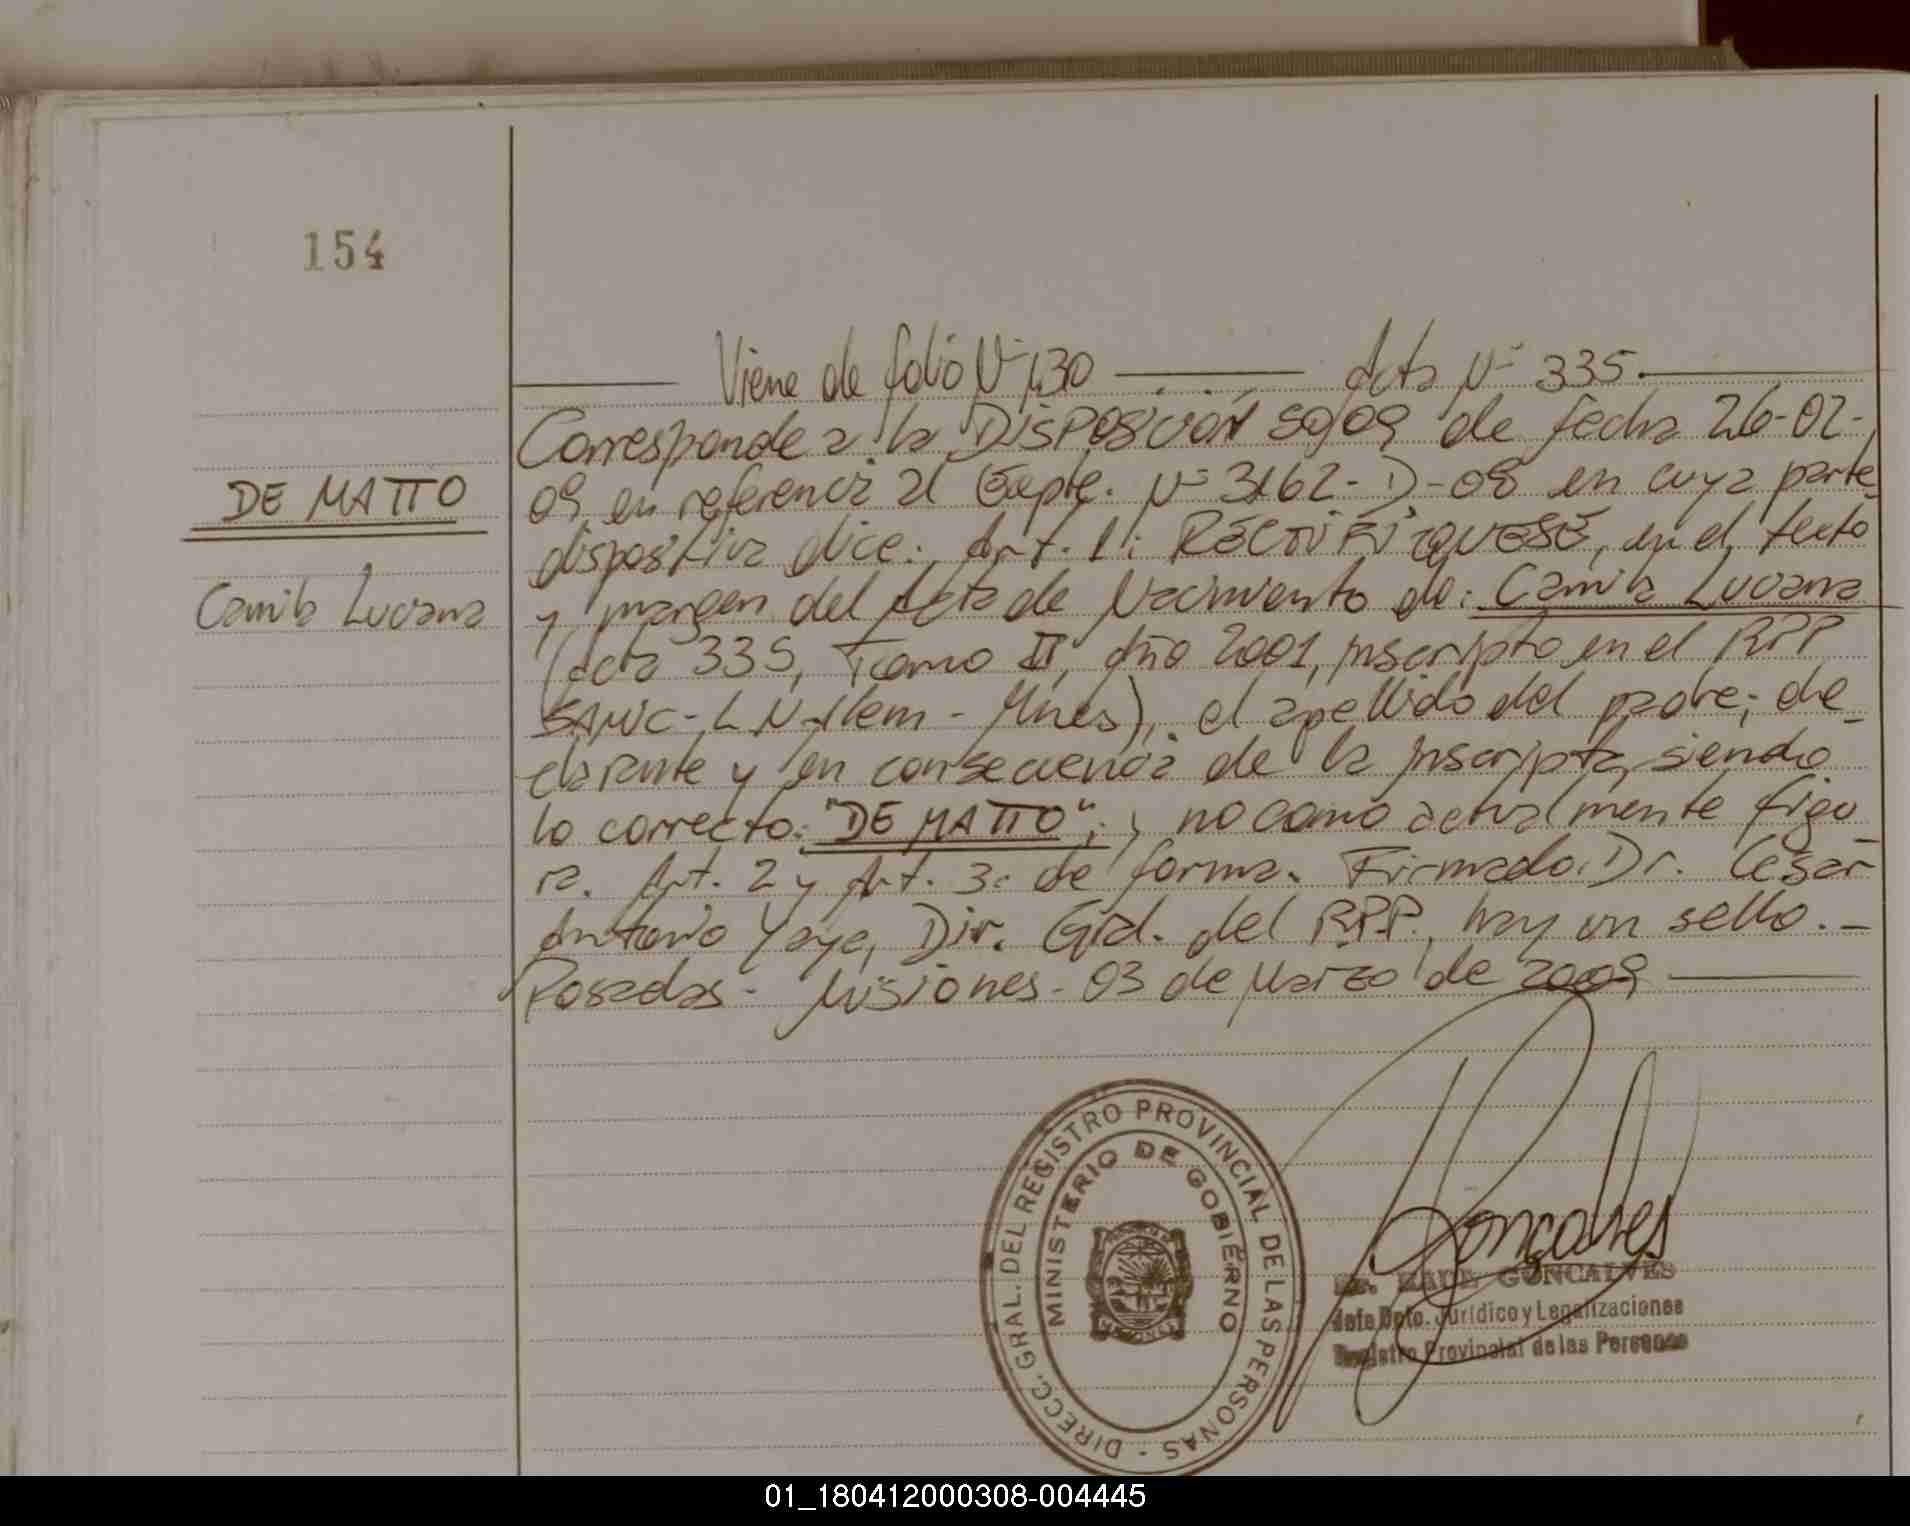 154
Viene de folio Nº 130 Acta Nº 335.
DE MATTO
Camila Luciana
Corresponde a la DISPOSICIÓN 50/09 de fecha 26-02-
09 en referencia al Expte. Nº 3162-D-08 en cuya parte
dispositiva dice: Art. 1: RECTIFIQUESE, en el texto
y margen del Acta de Nacimiento de: Camila Luciana
(Acta 335, Tomo II, Año 2001, inscripto en el RPP
SAMIC-L.N.Alem - Mnes), el apellido del padre; de-
clarante y en consecuencia de la inscripta, siendo
lo correcto: "DE MATTO"; y no como actualmente figu-
ra. Art. 2 y Art. 3: de forma. Firmado: Dr. Cesar
Antonio Yaya, Dir. Gral. del R.P.P., hay un sello.-
Posadas - Misiones - 03 de Marzo de 2009
DIRECC. GRAL. DEL REGISTRO PROVINCIAL DE LAS PERSONAS -
MINISTERIO DE GOBIERNO
MISIONES
Goncalves
GONCALVES
Jefe Dpto. Jurídico y Legalizaciones
Registro Provincial de las Personas
01_180412000308-004445